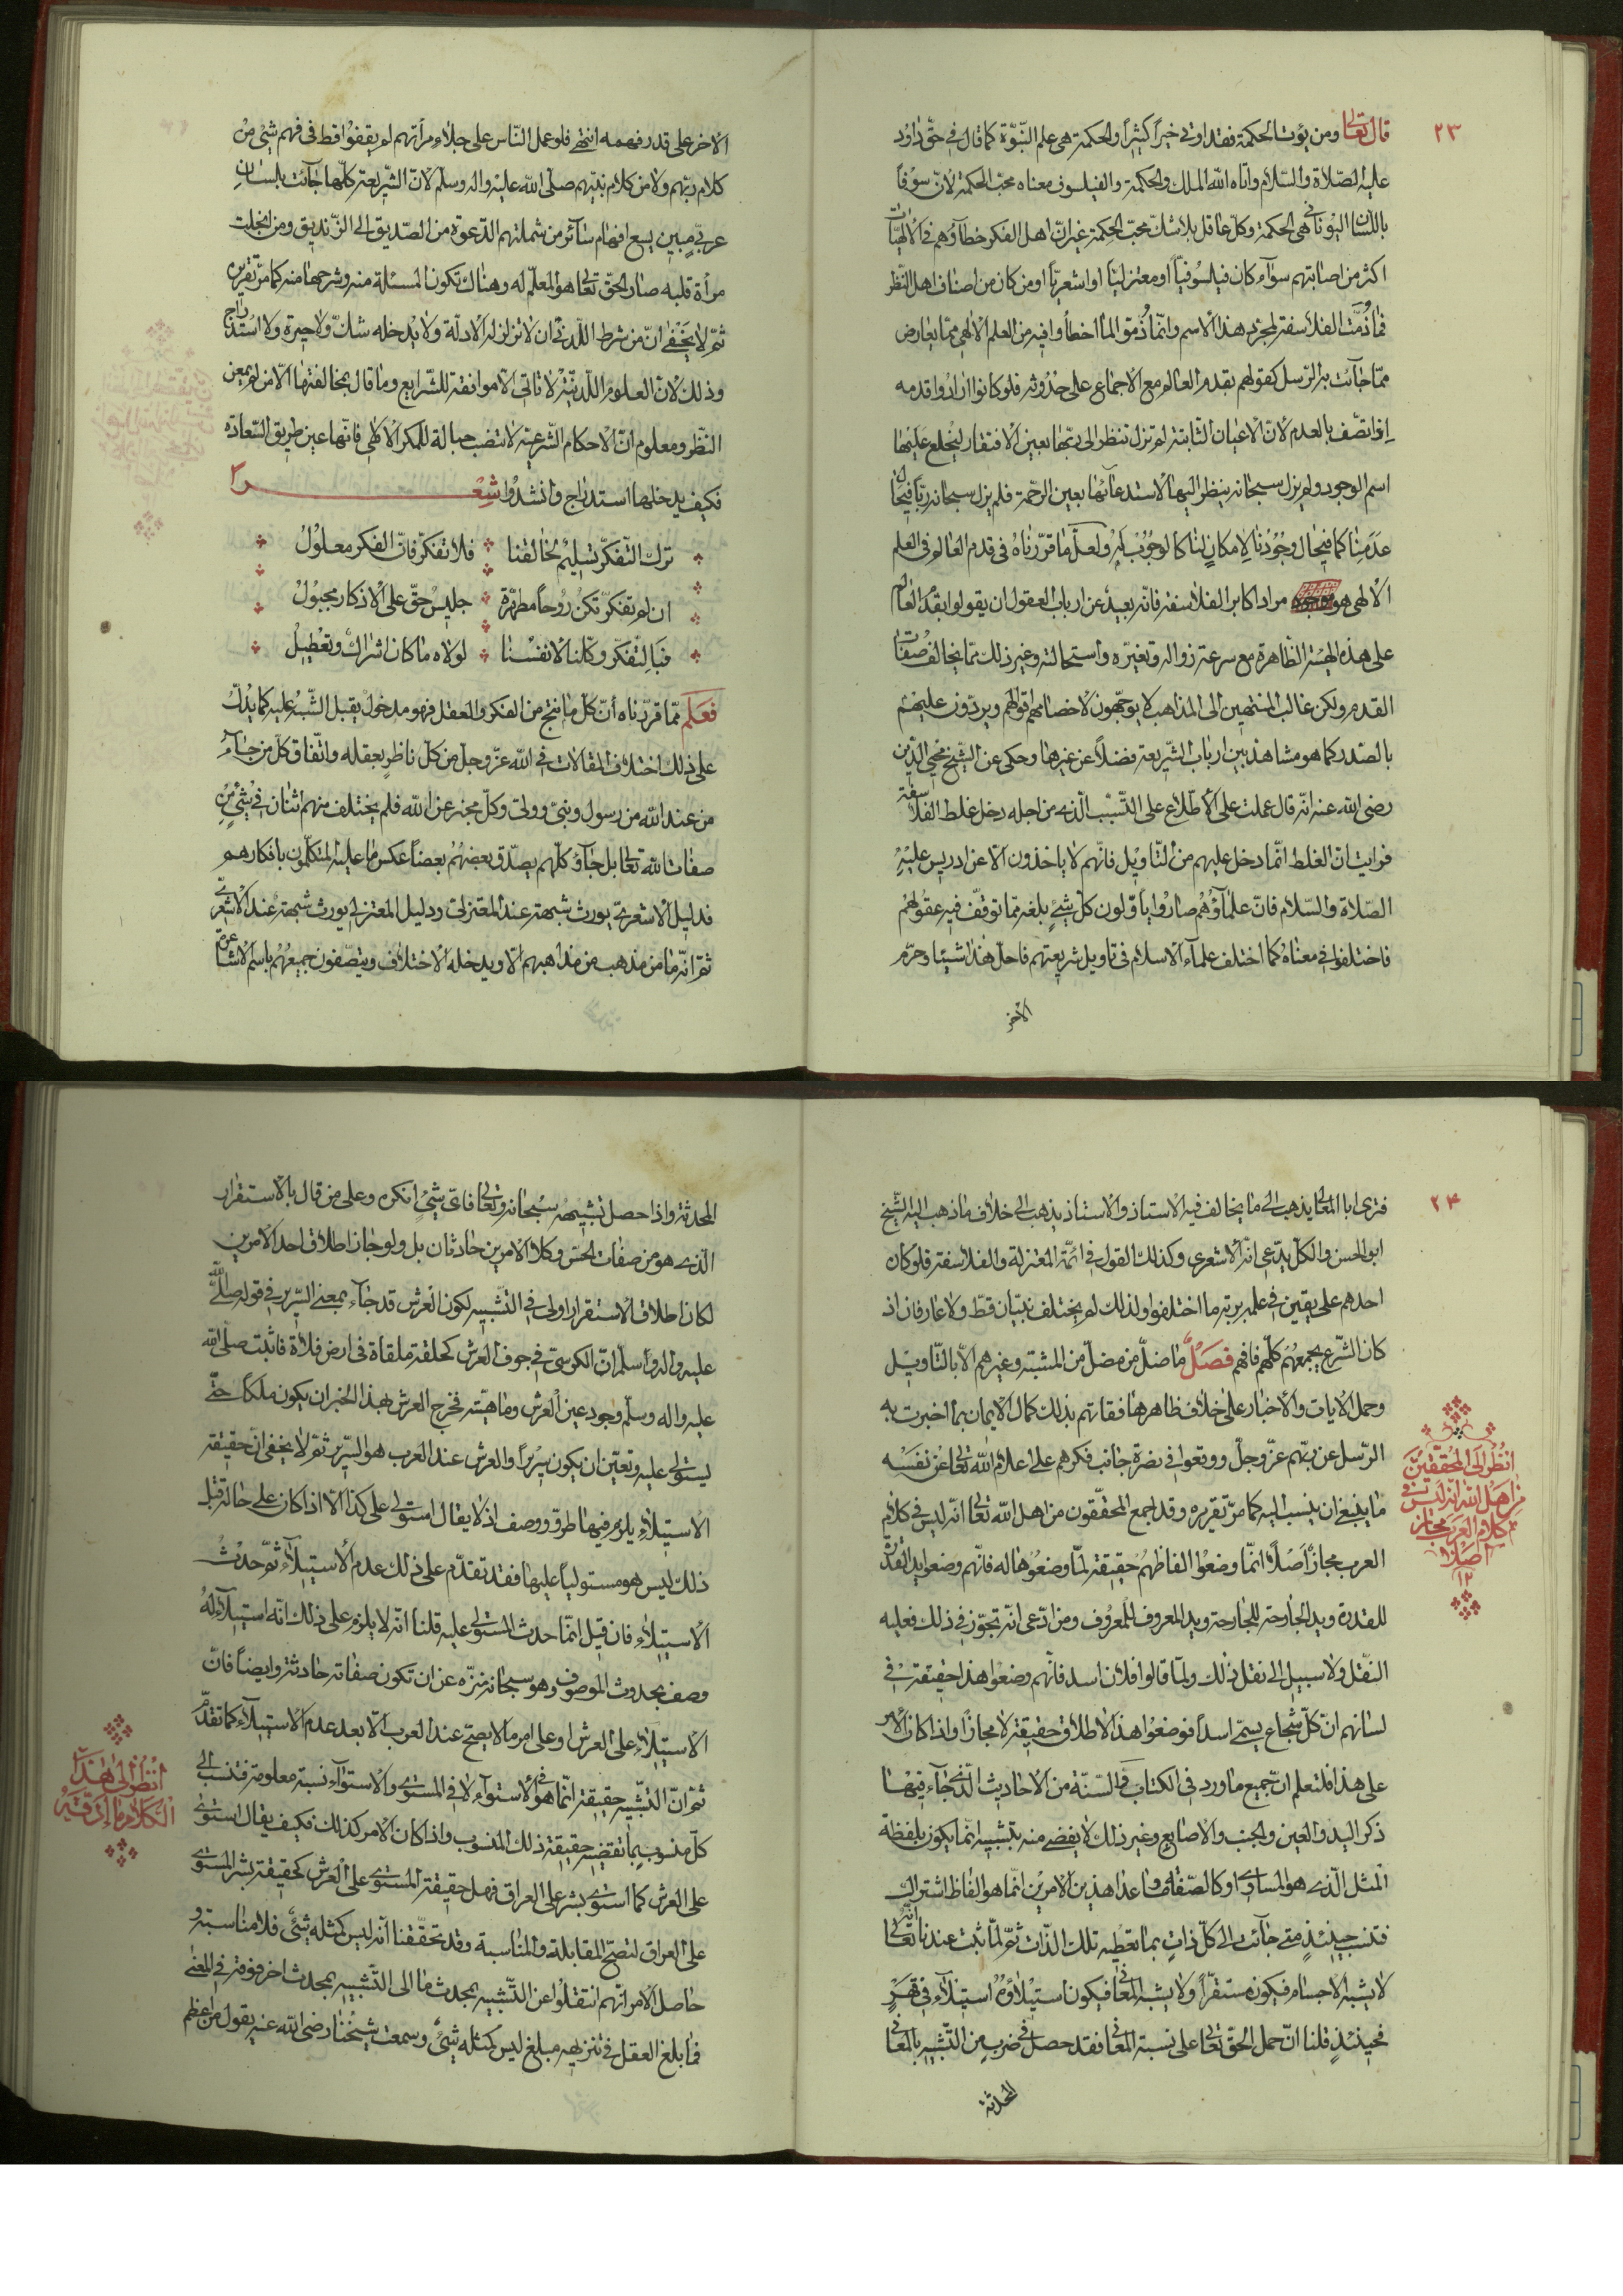 ٢٣
قال تعالى ومن يؤت الحكمة فقد اوتى خيراً كثيراً والحكمة هى علم النّبوّة كما قال فى حقّ داود
عليه الصّلاة والسّلام واتاه الله الملك والحكمة والفيلسوف معناه محبّ الحكمة لانّ سوفا
باللّسان اليونانى هى الحكمة وكلّ عاقل بلا شكّ يحبّ الحكمة غير انّ اهل الفكر خطاؤهم فى الالهيّات
اكثر من اصابتهم سوآء كان فيلسوفيّاً او معتزليّاً او اشعريّاً او من كان من اصناف اهل النّظر
فما ذُمّت الفلاسفة لمجرّد هذا الاسم وانّما ذُمّوا لما اخطأوا فيه من العلم الالهى ممّا يعارض
ممّا جآئت به الرّسل كقولهم بقدم العالم مع الاجماع على حدوثه فلو كانوا ارادوا قدمه
اذا اتّصف بالعدم لانّ الاعيان الثابتة لم تزل تنظر الى ربّها بعين الافتقار ليخلع عليها
اسم الوجود ولم يزل سبحانه ينظر اليها لاستدعآئها بعين الرّحمة فلم يزل سبحانه ربّاً فى حال
عدمنا كما فى حال وجودنا لامكانٍ لنا كالوجوب له ولعلّ ما قرّرناه فى قدم العالم فى العلم
الالهى هو مراد اكابر الفلاسفة فانّه بعيد عن ارباب العقول ان يقولوا بقدم العالم
على هذه الهيئة الظّاهرة مع سرعة زواله وتغيّره واستحالته وغير ذلك ممّا يخالف صفات
القدم ولكن غالب المنتهين الى المذاهب لا يوجّهون لاخصامهم اقوالهم ويردّون عليهم
بالصّدر كما هو مشاهد بين ارباب الشّريعة فضلاً عن غيرها وحكى عن الشّيخ محيى الدّين
رضى الله عنه انّه قال عملت على الاطّلاع على السّبب الّذى من اجله دخل غلط الفلاسفة
فرايت انّ الغلط انّما دخل عليهم من التّاويل فانّهم لا ياخذون الّا عن ادريس عليه
الصّلاة والسّلام فانّ علمآؤهم صاروا ياوّلون كلّ شىءٍ بلغه ممّا توقّف فيه عقولهم
فاختلفوا فى معناه كما اختلف علمآء الاسلام فى تاويل شريعتهم فاحلّ هذا شيئا وحرّم
الآخر
الآخر على قدر فهمه انتهى فلو عمل النّاس على جلاء مرآتهم لم يقفوا قطّ فى فهم شىء من
كلام ربّهم ولا من كلام نبيّهم صلّى الله عليه واله وسلّم لانّ الشّريعة كلّها جآئت بلسانٍ
عربىّ مبين يسع افهام سآئر من شملتهم الدّعوة من الصّديق الى الزّنديق ومن انجلت
مرآة قلبه صار الحقّ تعالى هو المعلّم له وهناك تكون المسئلة منه وشرحها منه كما مرّ تقريره
ثمّ لا يخفى انّ من شرط اللّدنّى ان لا تزلزله الادلّة ولا يدخله شكّ ولا حيرة ولا استدراج
وذلك لانّ العلوم اللّدنيّة لا تاتى الّا موافقة للشّرايع وما قال بمخالفتها الّا من لم يمعن
النّظر ومعلوم انّ الاحكام الشّرعيّة لا تنصب حبالة للمكر الالهى فانّها عين طريق السّعادة
فكيف يدخلها استدراج وانشدوا شعرا
ترك التّفكّر تسليم لخالقنا فلا تفكّر فانّ الفكر معلول
ان لم تفكّر تكن روحاً مطهّرة جليس حقّ على الاذكار مجبول
فبالتّفكّر وكّلنا لانفسنا لولاه ما كان اشراك وتعطيل
فعلم ممّا قرّرناه انّ كلّ ما ينتج من الفكر والعقل فهو مدخول يقبل الشّبه عليه كما يدلّك
على ذلك اختلاف المقالات فى الله عزّ وجلّ من كلّ ناظر بعقله واتّفاق كلّ من جآء
من عند الله من رسول ونبىّ وولىّ وكلّ مخبر عن الله فلم يختلف منهم اثنان فى شىء من
صفات الله تعالى بل جآؤ كلّهم يصدّق بعضهم بعضاً عكس ما عليه المتكلّمون بافكارهم
فدليل الاشعرىّ يورث شبهة عند المعتزلى ودليل المعتزلى يورث شبهة عند الاشعرىّ
ثمّ انّه ما من مذهب من مذاهبهم الّا ويدخله الاختلاف ويتّصفون جميعهم باسم الاشاعرة
٢٤
فترى ابا المعالى يذهب الى ما يخالف فيه الاستاذ والاستاذ يذهب الى خلاف ما ذهب اليه الشّيخ
ابو الحسن والكلّ يدّعى انّه الاشعرى وكذلك القول فى ائمّة المعتزلة والفلاسفة فلو كان
احدهم على يقين فى علمه بربّه ما اختلفوا ولذلك لم يختلف نبيّان قطّ ولا عارفان اذ
كان الشّرع يجمعهم كلّهم فافهم فصل ما ضلّ من مضلّ من المشبّهة وغيرهم الّا بالتّاويل
وحمل الايات والاخبار على خلاف ظاهرها ففاتهم بذلك كمال الايمان بما اخبرت به
الرّسل عن ربّهم عزّ وجلّ ووقعوا فى نصرة جانب فكرهم على اعلام الله تعالى عن نفسه
ما ينبغى ان ينسب اليه كما مرّ تقريره وقد اجمع المحقّقون من اهل الله تعالى انّه ليس فى كلام
العرب مجاز اصلاً انّما وضعوا الفاظهم حقيقة لمّا وضعوها له فانّهم وضعوا يد القدرة
للقدرة ويد الجارحة للجارحة ويد المعروف للمعروف ومن ادّعى انّه تجوّز فى ذلك فعليه
النّقل ولا سبيل الى نقل ذلك ولمّا قالوا فلان اسد فانّهم وضعوا هذا حقيقة فى
لسانهم انّ كلّ شجاع يسمّى اسداً فوضعوا هذا الاطلاق حقيقة لا مجازاً واذا كان الامر
على هذا فلتعلم انّ جميع ما ورد فى الكتاب والسّنّة من الاحاديث الّذى جآء فيها
ذكر اليد والعين والجنب والاصابع وغير ذلك لا يفضى منه بتشبيه انّما يكون بلفظة
المثل الّذى هو المساوى او كالصّفة وما عدا هذين الامرين انّما هو الفاظ اشتراك
فتنسب حينئذٍ متى جآئت الى كلّ ذات بما تعطيه تلك الذّات ثمّ لمّا ثبت عندنا انّه تعالى
لا يشبه الاجسام فيكون مستقرّاً ولا يشبه المعانى فيكون استيلاؤه استيلآء فى قهر
فحينئذٍ قلنا انّ حمل الحقّ تعالى على نسبة المعانى فقد حصل فى ضربٍ من التّشبيه بالمعانى
المحدثة
انظر الى المحقّقين
من اهل الله انّه ليس فى
كلام العرب مجاز
اصلاً
١٢
المحدثة واذا حصل تشبيهه سبحانه وتعالى فاىّ شىء انكره وعلى من قال بالاستقرار
الّذى هو من صفات الحسّ وكلا الامرين حادثان بل ولو جاز اطلاق احد الامرين
لكان اطلاق الاستقرار اولى فى التّشبيه لكون العرش قد جآء بمعنى السّرير فى قوله صلّى الله
عليه واله وسلّم انّ الكرسىّ فى جوف العرش كحلقة ملقاة فى ارض فلاة فاثبت صلّى الله
عليه واله وسلّم وجود عين العرش وماهيّته فخرج العرش بهذا الخبر ان يكون ملكاً حتّى
يستولى عليه وتعيّن ان يكون سريراً والعرش عند العرب هو السّرير ثمّ لا يخفى انّ حقيقة
الاستيلآء يلزم فيها طرق ووصف اذ لا يقال استولى على كذا الّا اذا كان على حالة قبل
ذلك ليس هو مستولياً عليها فقد تقدّم على ذلك عدم الاستيلآء ثمّ حدث
الاستيلآء فان قيل انّما حدث المستولى عليه قلنا انّه لا يلزم على ذلك انّه استيلآء له
وصف بحدوث الموصوف وهو سبحانه منزّه عن ان تكون صفاته حادثة وايضاً فانّ
الاستيلآء على العرش او على امر ما لا يصحّ عند العرب الّا بعد عدم الاستيلآء كما تقدّم
ثمّ انّ التّشبيه حقيقة انّما هو فى الاستوآء لا فى المستوى والاستوآء نسبة معلومة فتنسب الى
كلّ منسوب بما تقتضيه حقيقة ذلك المنسوب واذا كان الامر كذلك فكيف يقال استوى
على العرش كما استوى بشر على العراق فهل حقيقة المستوى على العرش كحقيقة بشر المستوى
على العراق لتصحّ المقابلة والمناسبة وقد تحقّقنا انّه ليس كمثله شىء فلا مناسبة و
حاصل الامر انّهم انتقلوا عن التّشبيه بمحدث ما الى التّشبيه بمحدث اخر فوقه فى المعنى
فما بلغ العقل فى تنزيهه مبلغ ليس كمثله شىء وسمعت شيخنا رضى الله عنه يقول من اعظم
انظر الى هذا
الكلام ما ادقّه